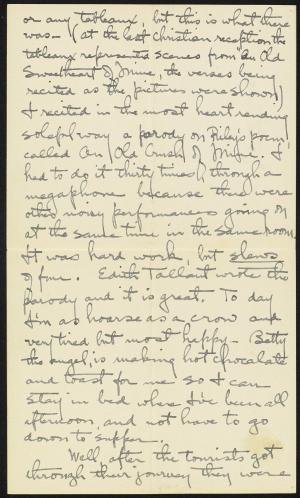 or any tableaux, but this is what there
was – (at the last Christian reception the
tableaux represented scenes from "An Old
Sweetheart of Mine, the verses being
recited as the pictures were shown)
I recited in the most heart rending
soleful way a parody on Riley's poem
called An Old Crush of Mine. I
had to do it thirty times through a
megaphone because there were
other noisy performances going on
at the same time in the same room
It was hard work, but slews
of fun. Edith Tallant wrote the
parody and it is great. To day
I'm as hoarse as a crow and
very tired but most happy – Betty
the angel, is making hot chocolate
and toast for me so I can
stay in bed where I've been all
afternoon, and not have to go
down to supper.
Well, after the tourists got
through their journey they were